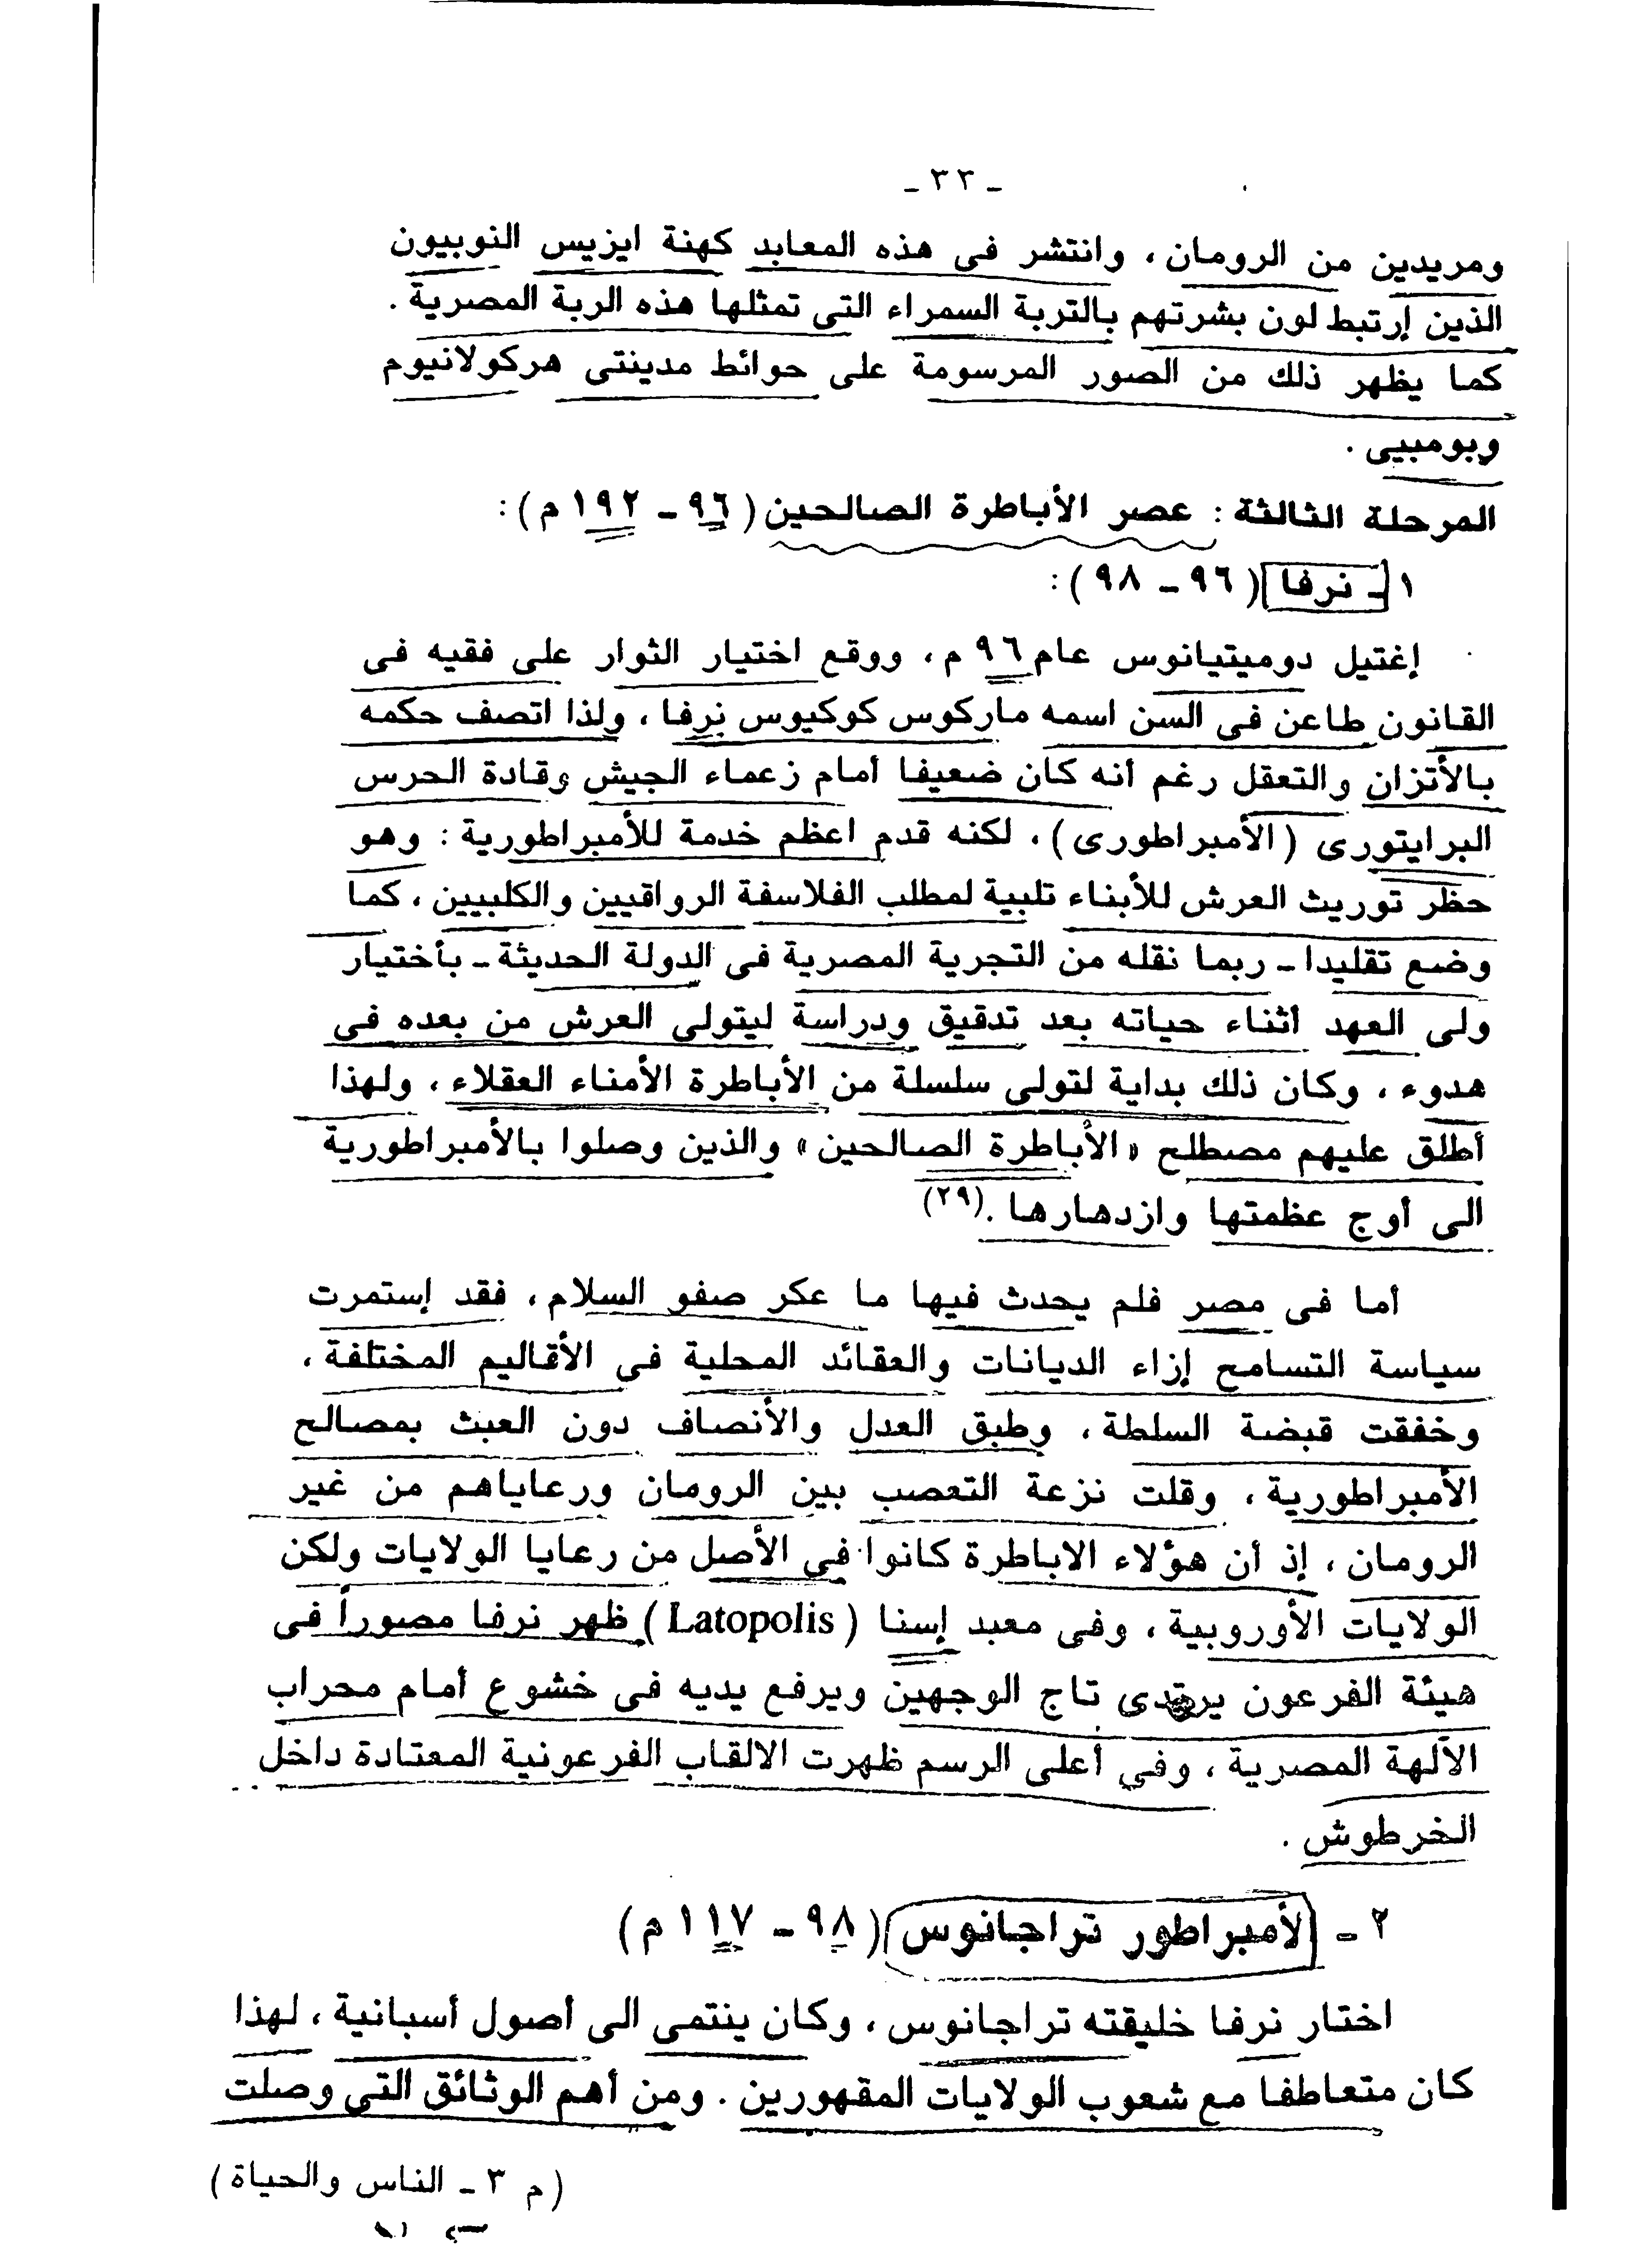 ـ ٣٣ ـ
ومريدين من الرومان ، وانتشر فى هذه المعابد كهنة ايزيس النوبيون
الذين إرتبط لون بشرتهم بالتربة السمراء التى تمثلها هذه الربة المصرية .
كما يظهر ذلك من الصور المرسومة على حوائط مدينتى هركولانيوم
وبومبيى .
المرحلة الثالثة : عصر الأباطرة الصالحين (٩٦ - ١٩٢ م) :
١ - نرفا (٩٦ - ٩٨) :
إغتيل دوميتيانوس عام ٩٦ م ، ووقع اختيار الثوار على فقيه فى
القانون طاعن فى السن اسمه ماركوس كوكيوس نرفا ، ولذا اتصف حكمه
بالأتزان والتعقل رغم أنه كان ضعيفا أمام زعماء الجيش وقادة الحرس
البرايتورى (الأمبراطورى) ، لكنه قدم اعظم خدمة للأمبراطورية : وهو
حظر توريث العرش للأبناء تلبية لمطلب الفلاسفة الرواقيين والكلبيين ، كما
وضع تقليدا - ربما نقله من التجربة المصرية فى الدولة الحديثة - بأختيار
ولى العهد أثناء حياته بعد تدقيق ودراسة ليتولى العرش من بعده فى
هدوء ، وكان ذلك بداية لتولى سلسلة من الأباطرة الأمناء العقلاء ، ولهذا
أطلق عليهم مصطلح «الأباطرة الصالحين» والذين وصلوا بالأمبراطورية
الى أوج عظمتها وازدهارها .(٢٩)
أما فى مصر فلم يحدث فيها ما عكر صفو السلام ، فقد إستمرت
سياسة التسامح إزاء الديانات والعقائد المحلية فى الأقاليم المختلفة ،
وخففت قبضة السلطة ، وطبق العدل والأنصاف دون العبث بمصالح
الأمبراطورية ، وقلت نزعة التعصب بين الرومان ورعاياهم من غير
الرومان ، إذ أن هؤلاء الاباطرة كانوا فى الأصل من رعايا الولايات ولكن
الولايات الأوروبية ، وفى معبد إسنا (Latopolis) ظهر نرفا مصوراً فى
هيئة الفرعون يرتدى تاج الوجهين ويرفع يديه فى خشوع أمام محراب
الآلهة المصرية ، وفي أعلى الرسم ظهرت الالقاب الفرعونية المعتادة داخل
الخرطوش .
٢ - الأمبراطور تراجانوس (٩٨ - ١١٧ م)
اختار نرفا خليفته تراجانوس ، وكان ينتمى الى أصول أسبانية ، لهذا
كان متعاطفا مع شعوب الولايات المقهورين . ومن أهم الوثائق التى وصلت
(م ٣ - الناس والحياة)